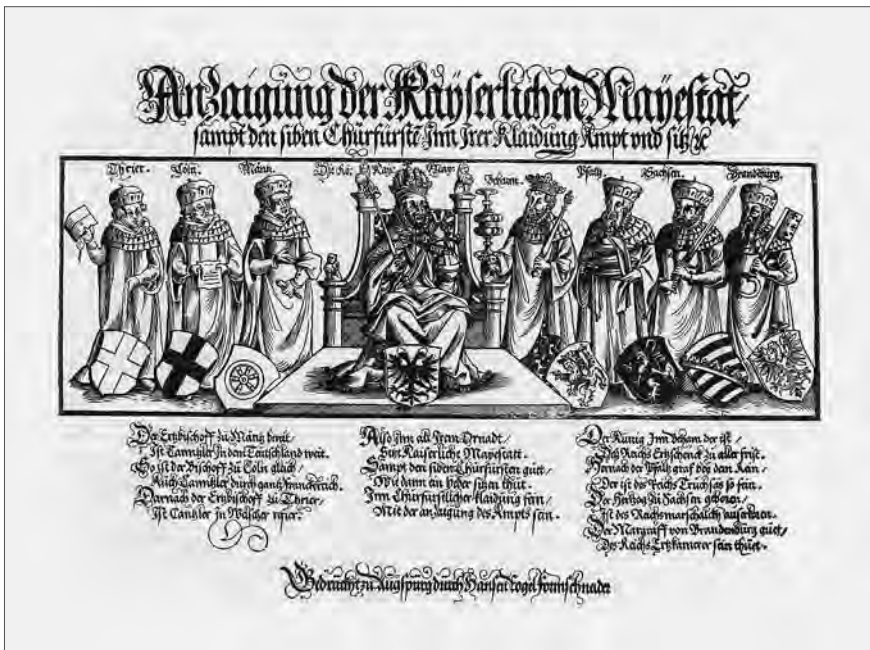 Anzaigung der Kayserlichen Mayestat/
sampt den siben Churfürstē Inn Irer Klaidung Ampt vnd sitz ꝛc
Thrier. Cöln. Mäntz. Die Rö: Kay: May: Beham. Pfaltz. Sachsen. Brandēburg.
Der Ertzbischoff zu Mäntz benit/
Ist Canntzler In dem Teutschland weit.
So ist der Bischoff zu Cöln gleich/
Auch Canntzler durch gantz Franckreich.
Darnach der Ertzbischoff zu Thrier/
Ist Cantzler in Wälscher
Also Inn all Irem Ornadt/
Sitzt Kaiserliche Mayestatt.
Sampt den siben Churfürsten guet/
Wie dann ein yeder sitzen thut.
Inn Churfürstlicher klaidung fein/
Mit der anzaigung des Ampts sein.
Der Künig Inn Beham der ist/
Des Reichs Ertzschenck zu aller frist.
Hernach der Pfaltzgraf bey dem Rein/
Der ist des Reichs Truchsas so fein.
Der Hertzog zu Sachsen geboren/
Ist des Reichs marschalch auserkoren.
Der Marggraff von Brandenburg guet/
Des Reichs Ertzkamerer sein thuet.
Gedruckt zu Augspurg durch Hansen Vogel Formschneider